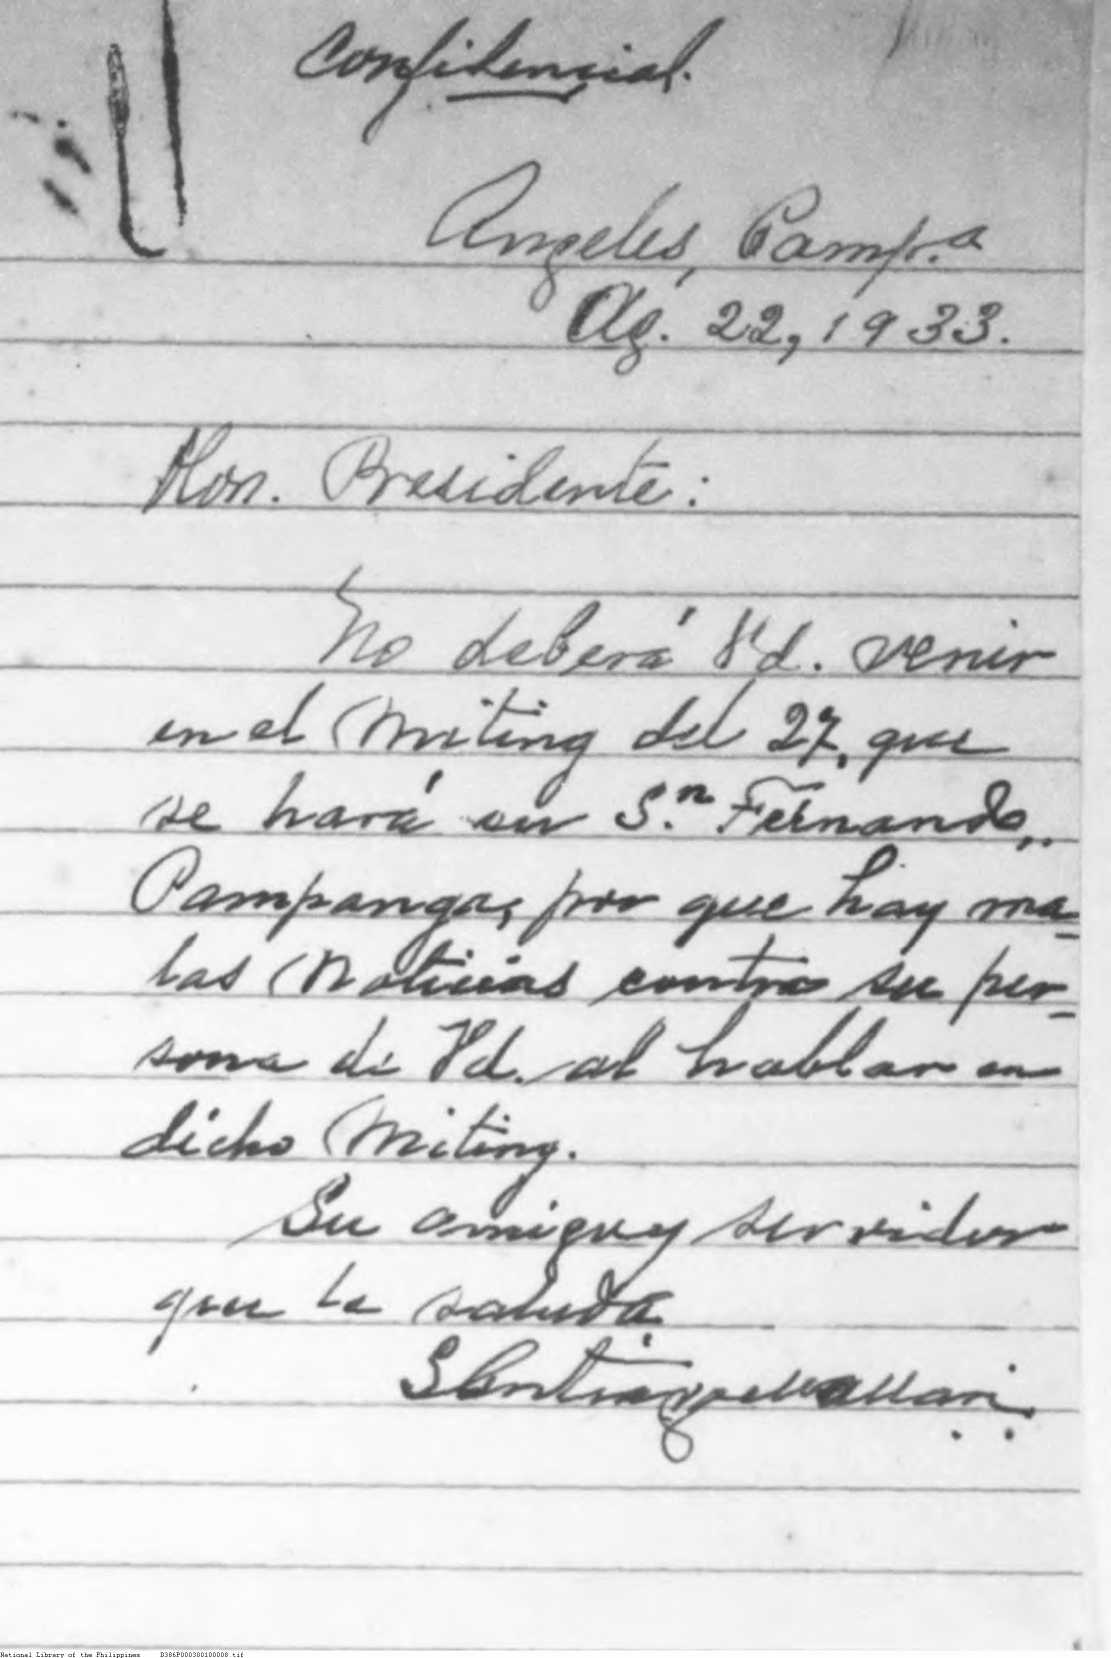 Confidencial.
Angeles, Pamp.a
Ag. 22, 1933.
Hon. Presidente:
No deberá Vd. venir
en el Miting del 27, que
se hará en S.n Fernando,
Pampanga, por que hay ma-
las Noticias contra su per-
sona de Vd. al hablar en
dicho Miting.
Su amigo y servidor
que le saluda
National Library of the Philippines B386P000300100008.tif